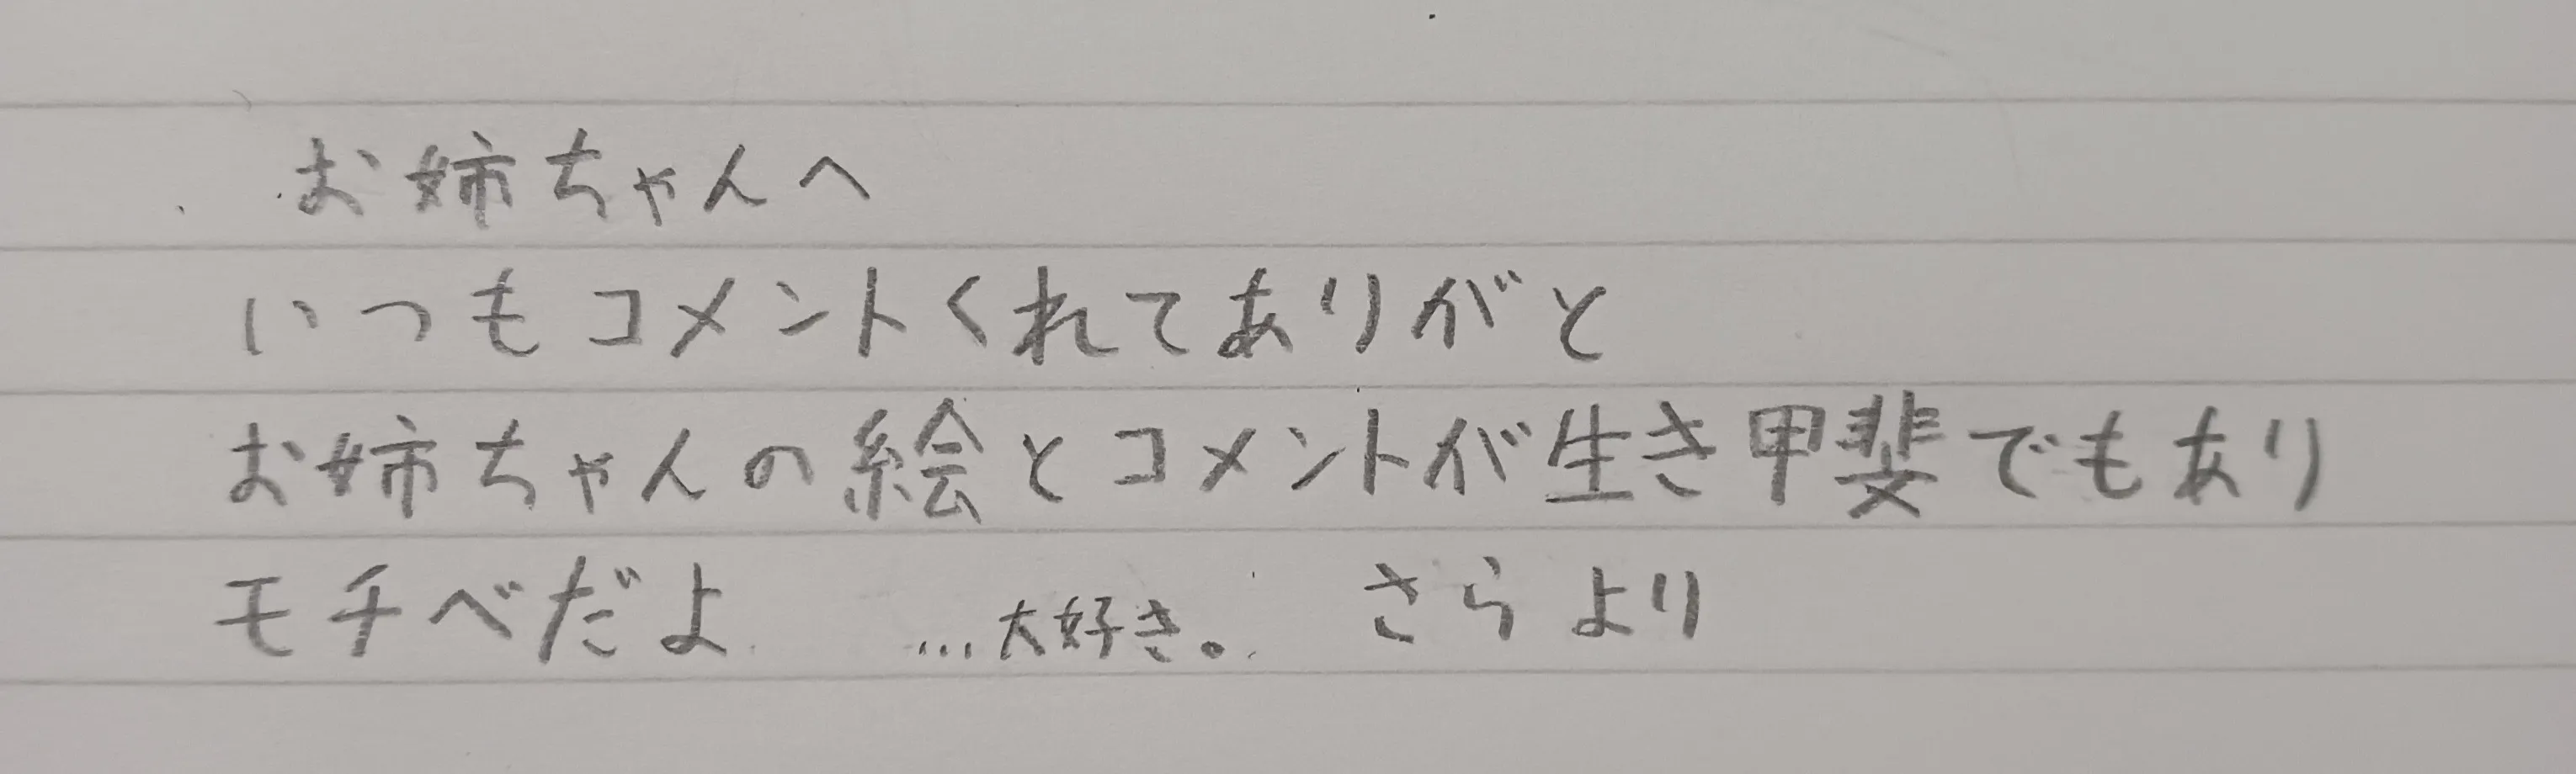 お姉ちゃんへ
いつもコメントくれてありがと
お姉ちゃんの絵とコメントが生き甲斐でもあり
モチベだよ ...大好き。 さらより